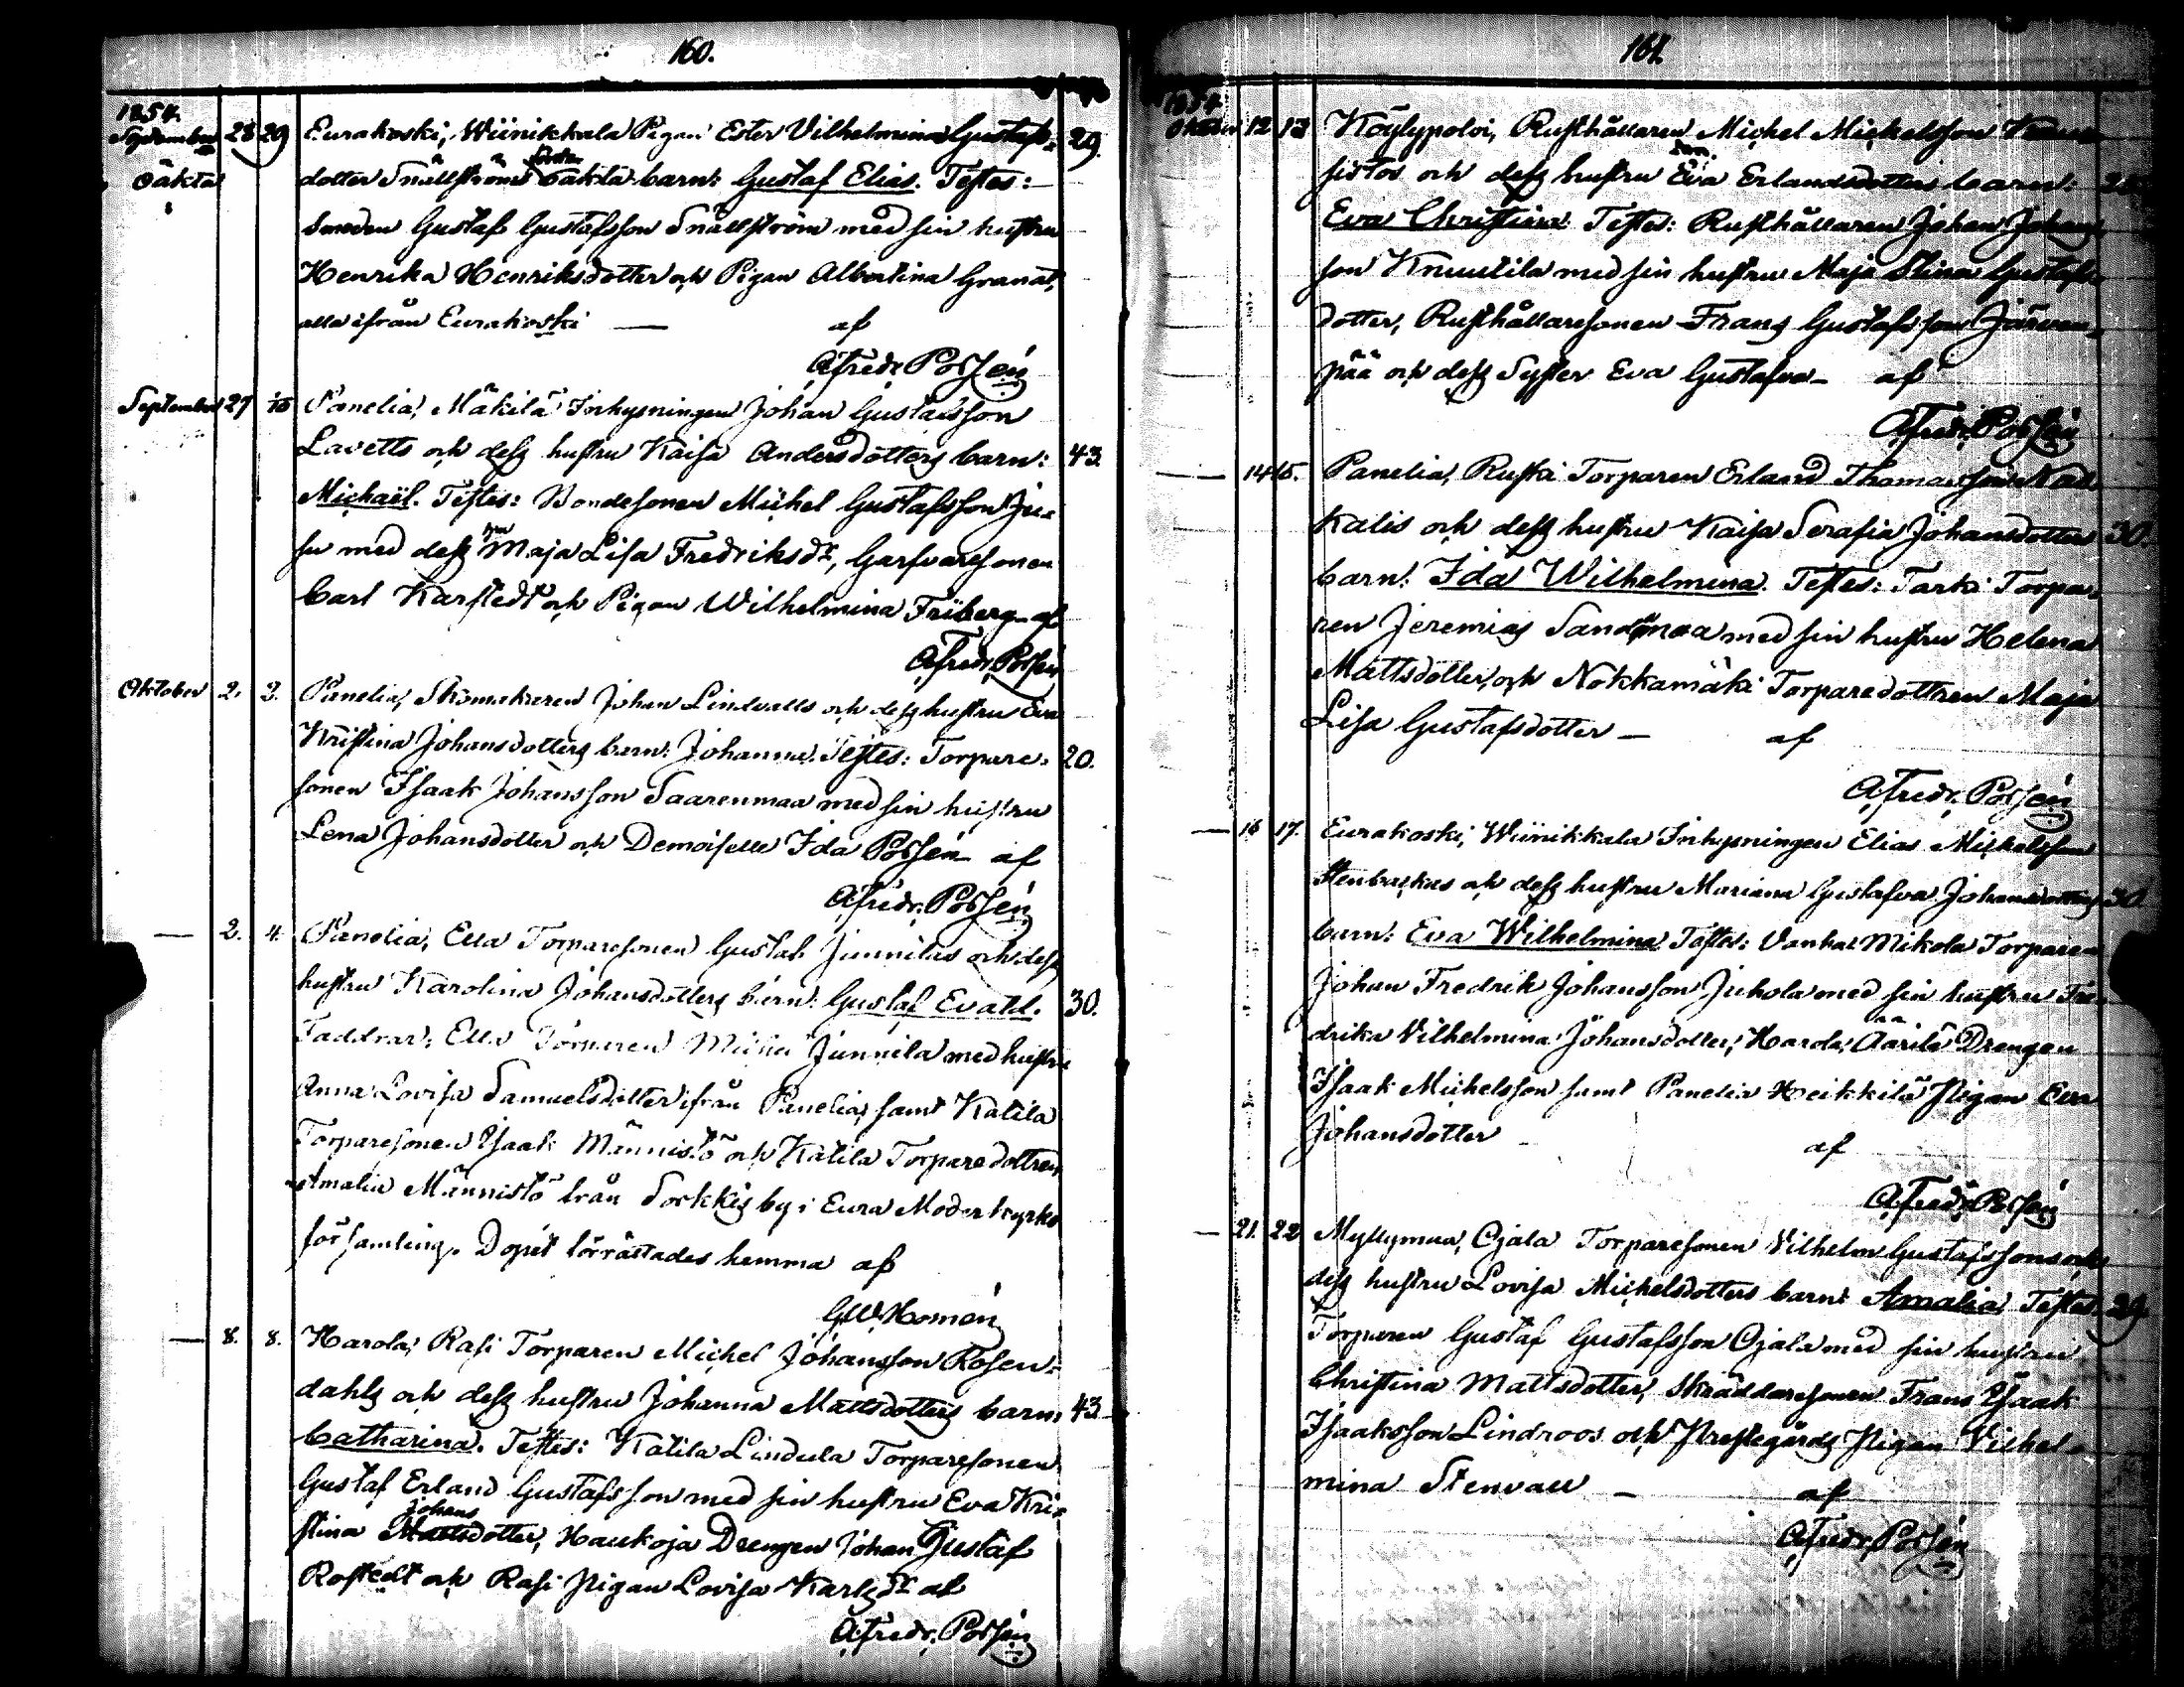 160.
1854.
September 28 29 Eurakoski, Wiinikkala Pigan Ester Vilhelmina Gustafs= 29.
oäkta dotter Snällströms första oäkta barn: Gustaf Elias. Testes:
Smeden Gustaf Gustafsson Snällström med sin hustru
Henrika Henriksdotter och Pigan Albertina Granat,
alla ifrån Eurakoski — af
A. Fredr. Possén
September 27 Panelia, Mäkilä Inhysningen Johan Gustafsson
Lavetts och dess hustru Kaisa Andersdotters barn: 43.
Michaël. Testes: Bondesonen Michel Gustafsson Ju=
su med dess hu Maja Lisa Fredriksdr, Garfvaresonen
Carl Karstedt och Pigan Wilhelmina Friberg - af
A. Fredr. Possén
Oktober 2. 3. Panelia, Skomakaren Johan Lindvalls och dess hustru Eva
Kristina Johansdotters barn: Johanna. Testes: Torpare= 20.
sonen Isaak Johansson Saarenmaa med sin hustru
Lena Johansdotter och Demoiselle Ida Possén af
A. Fredr. Possén
— 2. 4. Panelia, Ella Torparesonen Gustaf Junnilas och dess
hustru Karolina Johansdotters barn: Gustaf Evald. 30.
Faddrar: Ella Torparen Michel Junnila med hustru
Anna Lovisa Samuelsdotter ifrån Panelia, samt Katila
Torparesonen Isaak Männistö och Katila Torparedottren
Amalia Männistö från Sorkkis by i Eura Moderkyrko
församling. Dopet förrättades hemma af
G. W. Homén
— 8. 8. Harola, Rasi Torparen Michel Johansson Rosen=
dahls och dess hustru Johanna Mattsdotters barn 43
Catharina. Testes: Katila Lindula Torparesonen
Gustaf Erland Gustafsson med sin hustru Eva Kri=
Johans
stina Mattsdotter, Haukoja Drengen Johan Gustaf
Rostedt och Rasi Pigan Lovisa Karlsdr af
A. Fredr. Possén
161.
1854.
Oktober 12 13 Köylypolvi, Rusthållaren Michel Michelsson
sistos och dess hustru Eva Erlandsdotters barn:
Eva Christina. Testes: Rusthållaren Johan Johans
son Knuutila med sin hustru Maja Stina Gustafs
dotter, Rusthållaresonen Frans Gustafsson Järven=
pää och dess Syster Eva Gustafva - af
A. Fredr. Possén
— 14 15. Panelia, Ruska Torparen Erland Thomasson
kalis och dess hustru Kaisa Serafia Johansdotters 30.
barn: Ida Wilhelmina. Testes: Tarki Torpa=
ren Jeremias Sandmaa med sin hustru Helena
Mattsdotter, och Nokkamäki Torparedottren Maja
Lisa Gustafsdotter — af
A. Fredr. Possén
— 16 17. Eurakoski, Wiinikkala Inhysningen Elias Michelsson
Stenbackas och dess hustru Mariana Gustafva Johansdotters 30
barn: Eva Wilhelmina. Testes: Vanha Mikola Torparen
Johan Fredrik Johansson Juhola med sin hustru Fre=
drika Vilhelmina Johansdotter, Harola, Äärilä Drengen
Isaak Michelsson samt Panelia Heikkilä Pigan Eva
Johansdotter — af
A. Fredr. Possén
— 21. 22 Myllymaa, Ojala Torparesonen Vilhelm Gustafssons och
dess hustru Lovisa Michelsdotters barn: Amalia. Testes: 29.
Torparen Gustaf Gustafsson Ojala med sin hustru
Christina Mattsdotter, Skräddaresonen Frans Isaak
Isaaksson Lindroos och Prestegårds Pigan Vilhel=
mina Stenvall — af
A. Fredr. Possén